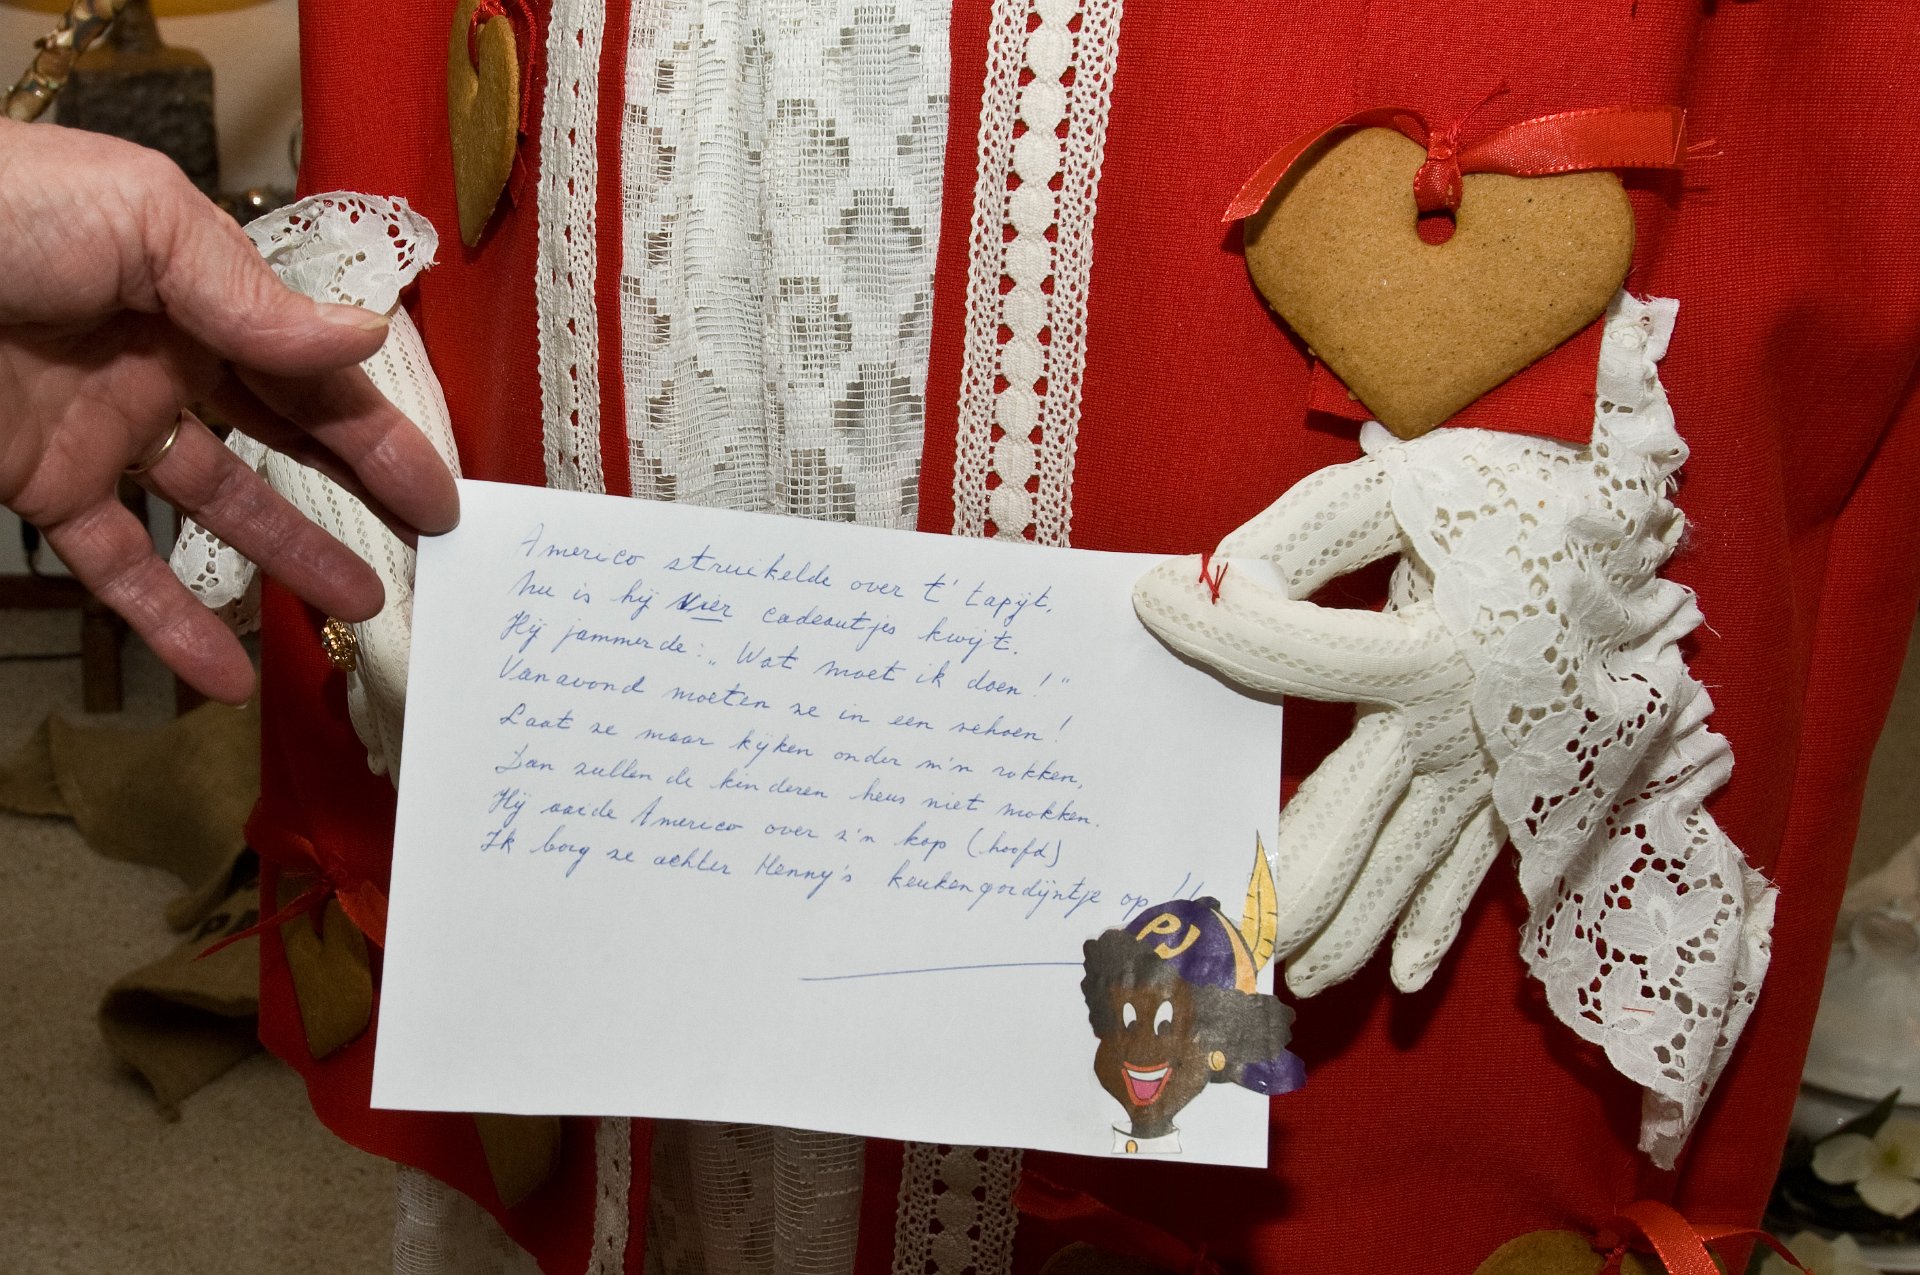 Americo struikelde over t' tapijt,
nu is hij vier cadeautjes kwijt.
Hij jammerde: „Wat moet ik doen!"
Vanavond moeten ze in een schoen!
Laat ze maar kijken onder m'n rokken,
Dan zullen de kinderen heus niet mokken.
Hij aaide Americo over z'n kop (hoofd)
Ik borg ze achter Henny's keukengordijntje op!!
PJ